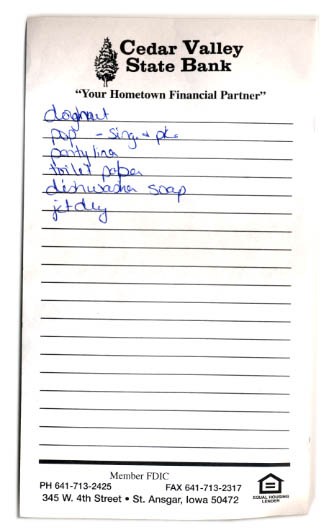 Cedar Valley
State Bank
"Your Hometown Financial Partner"
doghnut
pop - sing + pks
pantyliner
toilet paper
dishwasher soap
jet dry
Member FDIC
PH 641-713-2425 FAX 641-713-2317
345 W. 4th Street • St. Ansgar, Iowa 50472
EQUAL HOUSING
LENDER